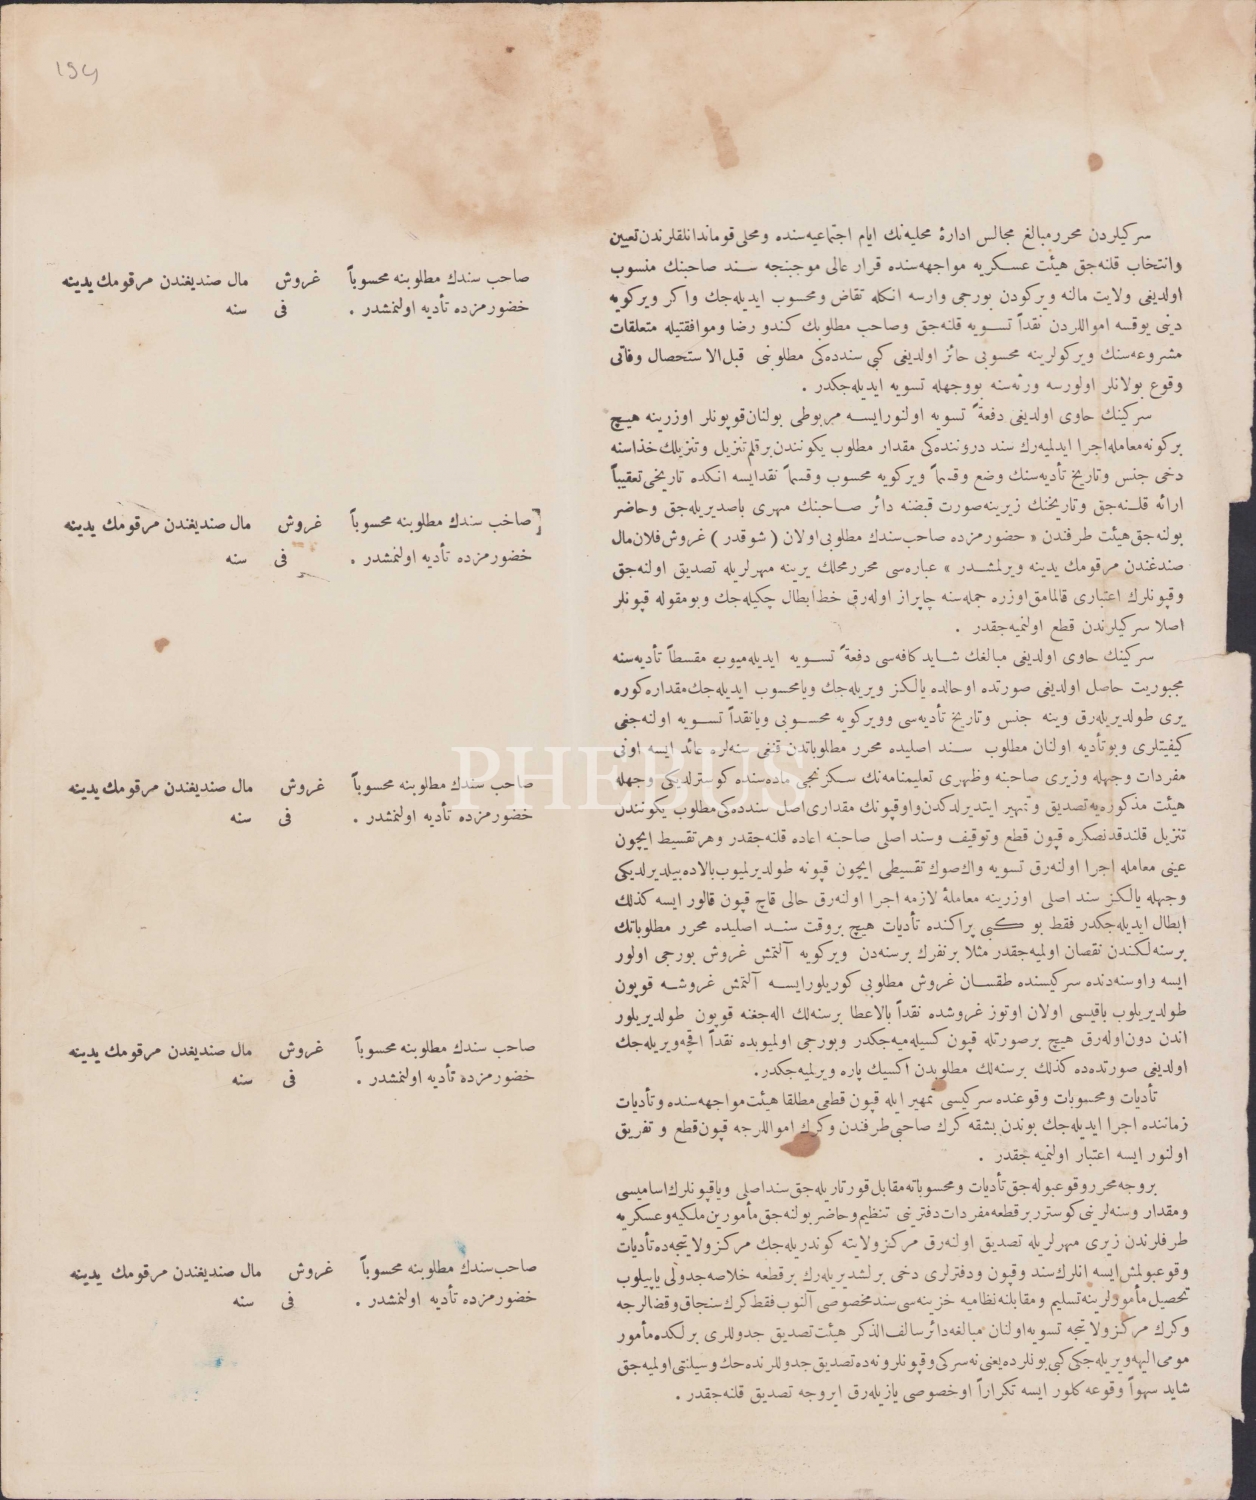 ۱۹۷
سرکیلردن محرر مبالغ مجالس ادارهٔ محلیه‌نك ایام اجتماعیه‌سنده ومحلی قوماندانلقلرندن تعیین
وانتخاب قلنه‌جق هیئت عسکریه مواجهه‌سنده قرار عالی موجبنجه سند صاحبنك منسوب
اولدیغی ولایت مالنه ویرکودن بورجی وارسه انکله تقاض ومحسوب ایدیله‌جك واکر ویرکویه
دینی یوقسه اموالاردن نقداً تسویه قلنه‌جق وصاحب مطلوبك کندو رضا وموافقتیله متعلقات
مشروعه‌سنك ویرکولرینه محسوبی حائز اولدیغی کبی سنددەکی مطلوبنی قبل‌الاستحصال وفاتی
وقوع بولانلر اولورسه ورثه‌سنه بووجهله تسویه ایدیله‌جکدر .
سرکینك حاوی اولدیغی دفعةً تسویه اولنورایسه مربوطی بولنان قوپونلر اوزرینه هیچ
برکونه معامله اجرا ایدلمیه‌رك سند دروننده‌کی مقدار مطلوب یکونندن برقلم تنزیل وتنزیلك حذاسنه
دخی جنس وتاریخ تأدیه‌سنك وضع وقسماً ویرکویه محسوب وقسماً نقدایسه انکده تاریخی تعقیباً
ارائه قلنه‌جق وتاریخنك زیرینه صورت قبضنه دائر صاحبنك مهری باصدیریله‌جق وحاضر
بولنه‌جق هیئت طرفندن « حضورمزده صاحب سندك مطلوبی اولان ( شوقدر ) غروش فلان مال
صندغندن مرقومك یدینه ویرلمشدر » عباره‌سی محرر محلك یرینه مهرلریله تصدیق اولنه‌جق
وقپونلرك اعتباری قالمامق اوزره جمله‌سنه چاپراز اوله‌رق خط ابطال چکیله‌جك وبومقوله قپونلر
اصلا سرکیلرندن قطع اولنمیه‌جقدر .
سرکینك حاوی اولدیغی مبالغك شاید کافه‌سی دفعةً تسویه ایدیله‌میوب مقسطاً تأدیه‌سنه
مجبوریت حاصل اولدیغی صورتده اوحالده یالکز ویریله‌جك ویامحسوب ایدیله‌جك مقداره کوره
یری طولدیریله‌رق وینه جنس وتاریخ تأدیه‌سی وویرکویه محسوبی ویانقداً تسویه اولنه‌جغی
کیفیتلری وبوتأدیه اولنان مطلوب سند اصلیده محرر مطلوباتدن قنغی سنه‌لره عائد ایسه اونی
مفردات وجهله وزیری صاحبنه وظهری تعلیمنامه‌نك سکزنجی ماده‌سنده کوسترلدیکی وجهله
هیئت مذکوره‌یه تصدیق وتمهیر ایتدیرلدکدن واوقپونك مقداری اصل سنددەکی مطلوب یکونندن
تنزیل قلندقدنصکره قپون قطع وتوقیف وسند اصلی صاحبنه اعاده قلنه‌جقدر وهر تقسیط ایچون
عینی معامله اجرا اولنه‌رق تسویه واك صوك تقسیطی ایچون قپونه طولدیرلمیوب بالاده بیلدیرلدیکی
وجهله یالکز سند اصلی اوزرینه معاملهٔ لازمه اجرا اولنه‌رق حالی قاچ قپون قالور ایسه کذلك
ابطال ایدیله‌جکدر فقط بو کبی پراکنده تأدیات هیچ بروقت سند اصلیده محرر مطلوباتك
برسنه‌لکندن نقصان اولمیه‌جقدر مثلا برنفرك برسنه‌دن ویرکویه آلتمش غروش بورجی اولور
ایسه واوسنه‌دنده سرکیسنده طقسان غروش مطلوبی کوریلورایسه آلتمش غروشه قوپون
طولدیریلوب باقیسی اولان اوتوز غروشده نقداً بالاعطا برسنه‌لك اله‌جغنه قوپون طولدیریلور
اندن دون اوله‌رق هیچ برصورتله قپون کسیله‌میه‌جکدر وبورجی اولمیوبده نقداً اقچه ویریله‌جك
اولدیغی صورتده‌ده کذلك برسنه‌لك مطلوبدن اکسیك پاره ویرلمیه‌جکدر.
تأدیات ومحسوبات وقوعنده سرکیسی تمهیر ایله قپون قطعی مطلقا هیئت مواجهه‌سنده وتأدیات
زماننده اجرا ایدیله‌جك بوندن بشقه کرك صاحبی طرفندن وکرك اموالارجه قپون قطع و تفریق
اولنور ایسه اعتبار اولنمیه‌جقدر .
بروجه محرر وقوعبوله‌جق تأدیات ومحسوباته مقابل قورتاریله‌جق سند اصلی ویاقپونلرك اسامیسی
ومقدار وسنه‌لرینی کوستر برقطعه مفردات دفترینی تنظیم وحاضر بولنه‌جق مأمورین ملکیه وعسکریه
طرفلرندن زیری مهرلریله تصدیق اولنه‌رق مرکز ولایته کوندریله‌جك مرکز ولایتجه‌ده تأدیات
وقوعبولمش ایسه انلرك سند وقپون ودفترلری دخی برلشدیریله‌رك برقطعه خلاصه جدولی یاپیلوب
تحصیل مأمورلرینه تسلیم ومقابلنه نظامیه خزینه‌سی سند مخصوصی آلنوب فقط کرك سنجاق وقضالرجه
وکرك مرکز ولایتجه تسویه اولنان مبالغه دائر سالف الذکر هیئت تصدیق جدوللری برلکده مأمور
مومی الیهه ویریله‌جکی کبی بونلرده یعنی نه سرکی وقپونلر ونه‌ده تصدیق جدوللرنده حك وسیلنتی اولمیه‌جق
شاید سهواً وقوعه کلور ایسه تکراراً اوخصوصی یازیله‌رق ابروجه تصدیق قلنه‌جقدر .
صاحب سندك مطلوبنه محسوباً غروش مال صندیغندن مرقومك یدینه
حضورمزده تأدیه اولنمشدر . فی سنه
صاحب سندك مطلوبنه محسوباً غروش مال صندیغندن مرقومك یدینه
حضورمزده تأدیه اولنمشدر . فی سنه
صاحب سندك مطلوبنه محسوباً غروش مال صندیغندن مرقومك یدینه
حضورمزده تأدیه اولنمشدر . فی سنه
صاحب سندك مطلوبنه محسوباً غروش مال صندیغندن مرقومك یدینه
حضورمزده تأدیه اولنمشدر . فی سنه
صاحب سندك مطلوبنه محسوباً غروش مال صندیغندن مرقومك یدینه
حضورمزده تأدیه اولنمشدر . فی سنه
PHEBUS